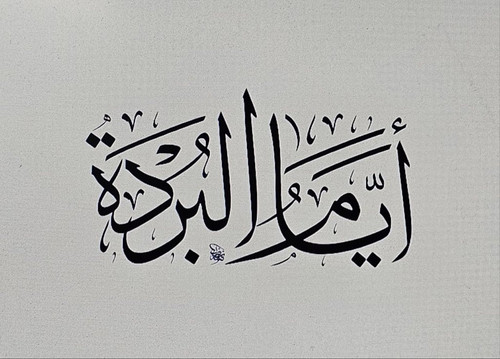 أيّام البُردة